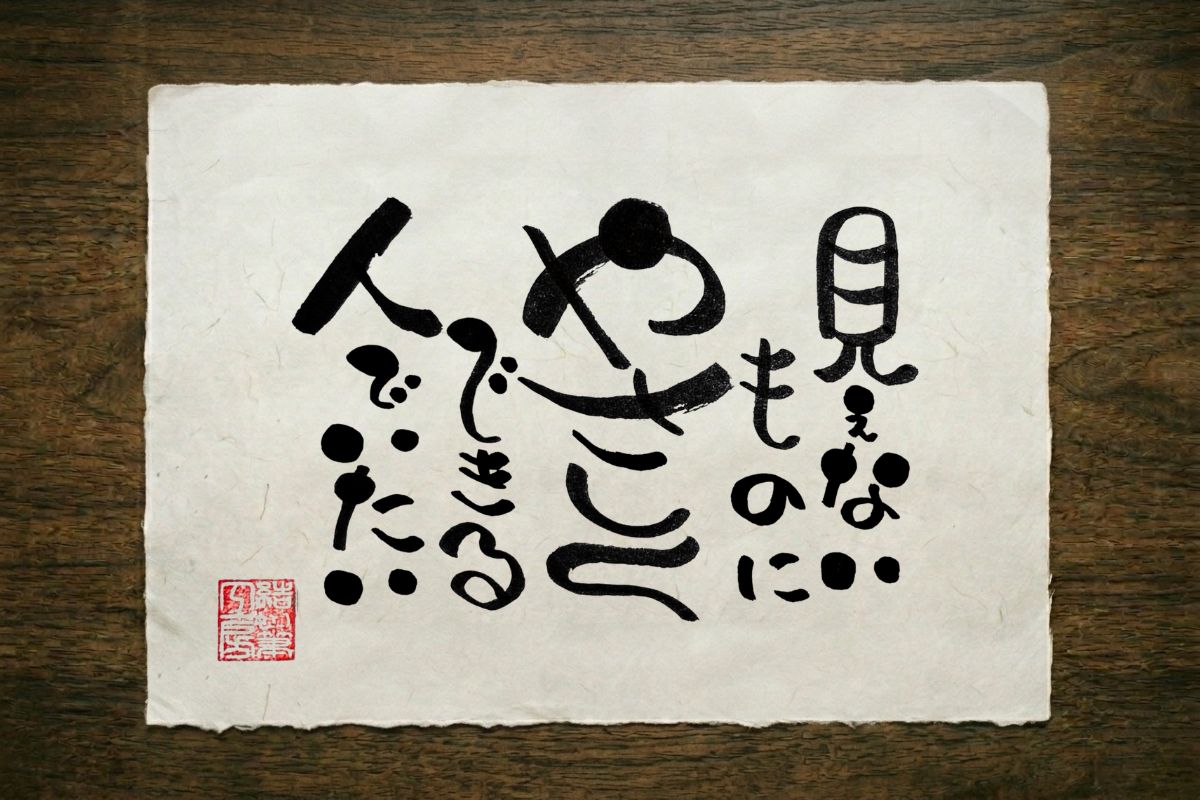 見えない
ものに
やさしく
できる
人でいたい